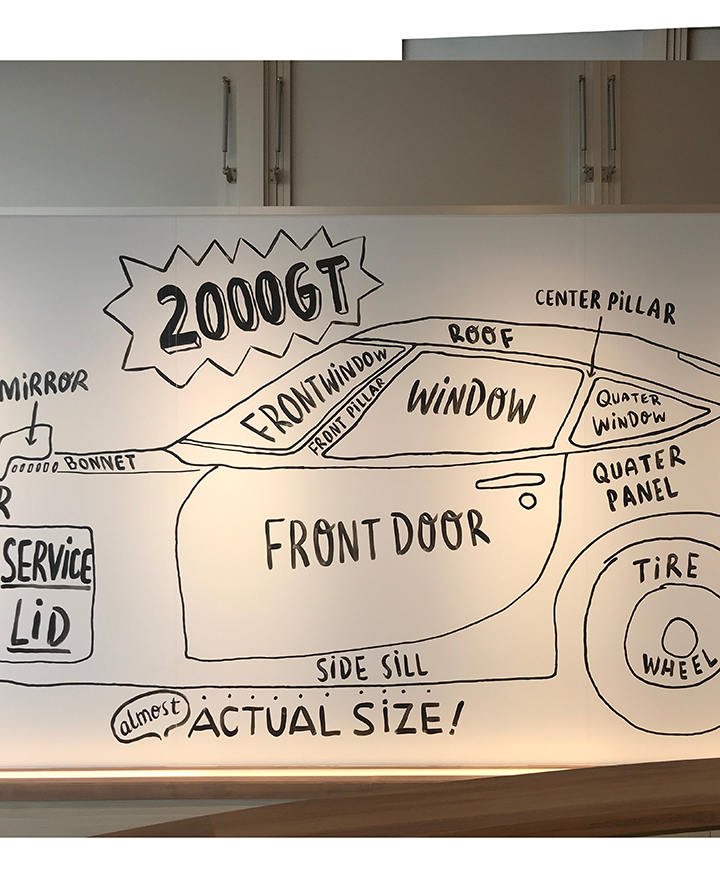 2000GT
CENTER PILLAR
ROOF
MIRROR
FRONT WINDOW
FRONT PILLAR
WINDOW
QUATER
WINDOW
BONNET
QUATER
PANEL
R
FRONT DOOR
SERVICE
LID
TIRE
WHEEL
SIDE SILL
almost ACTUAL SIZE!